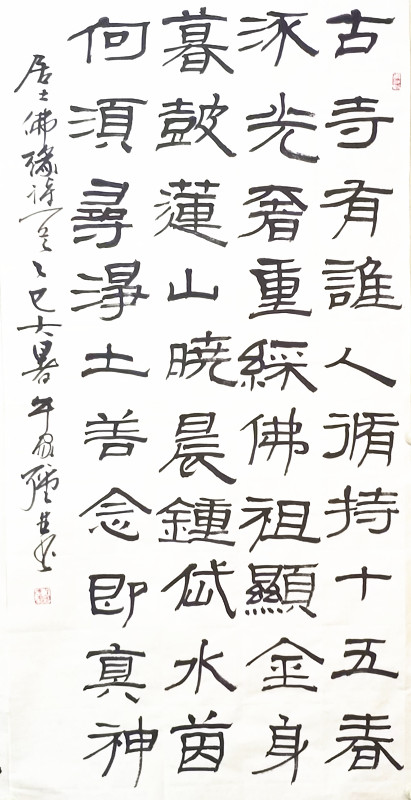 古寺有誰人脩持十五春
沐光奢重綵佛祖顯金身
暮鼓蓮山曉晨鍾岱水茵
何須尋淨土善念即真神
居士佛緣詩一首乙巳大暑書